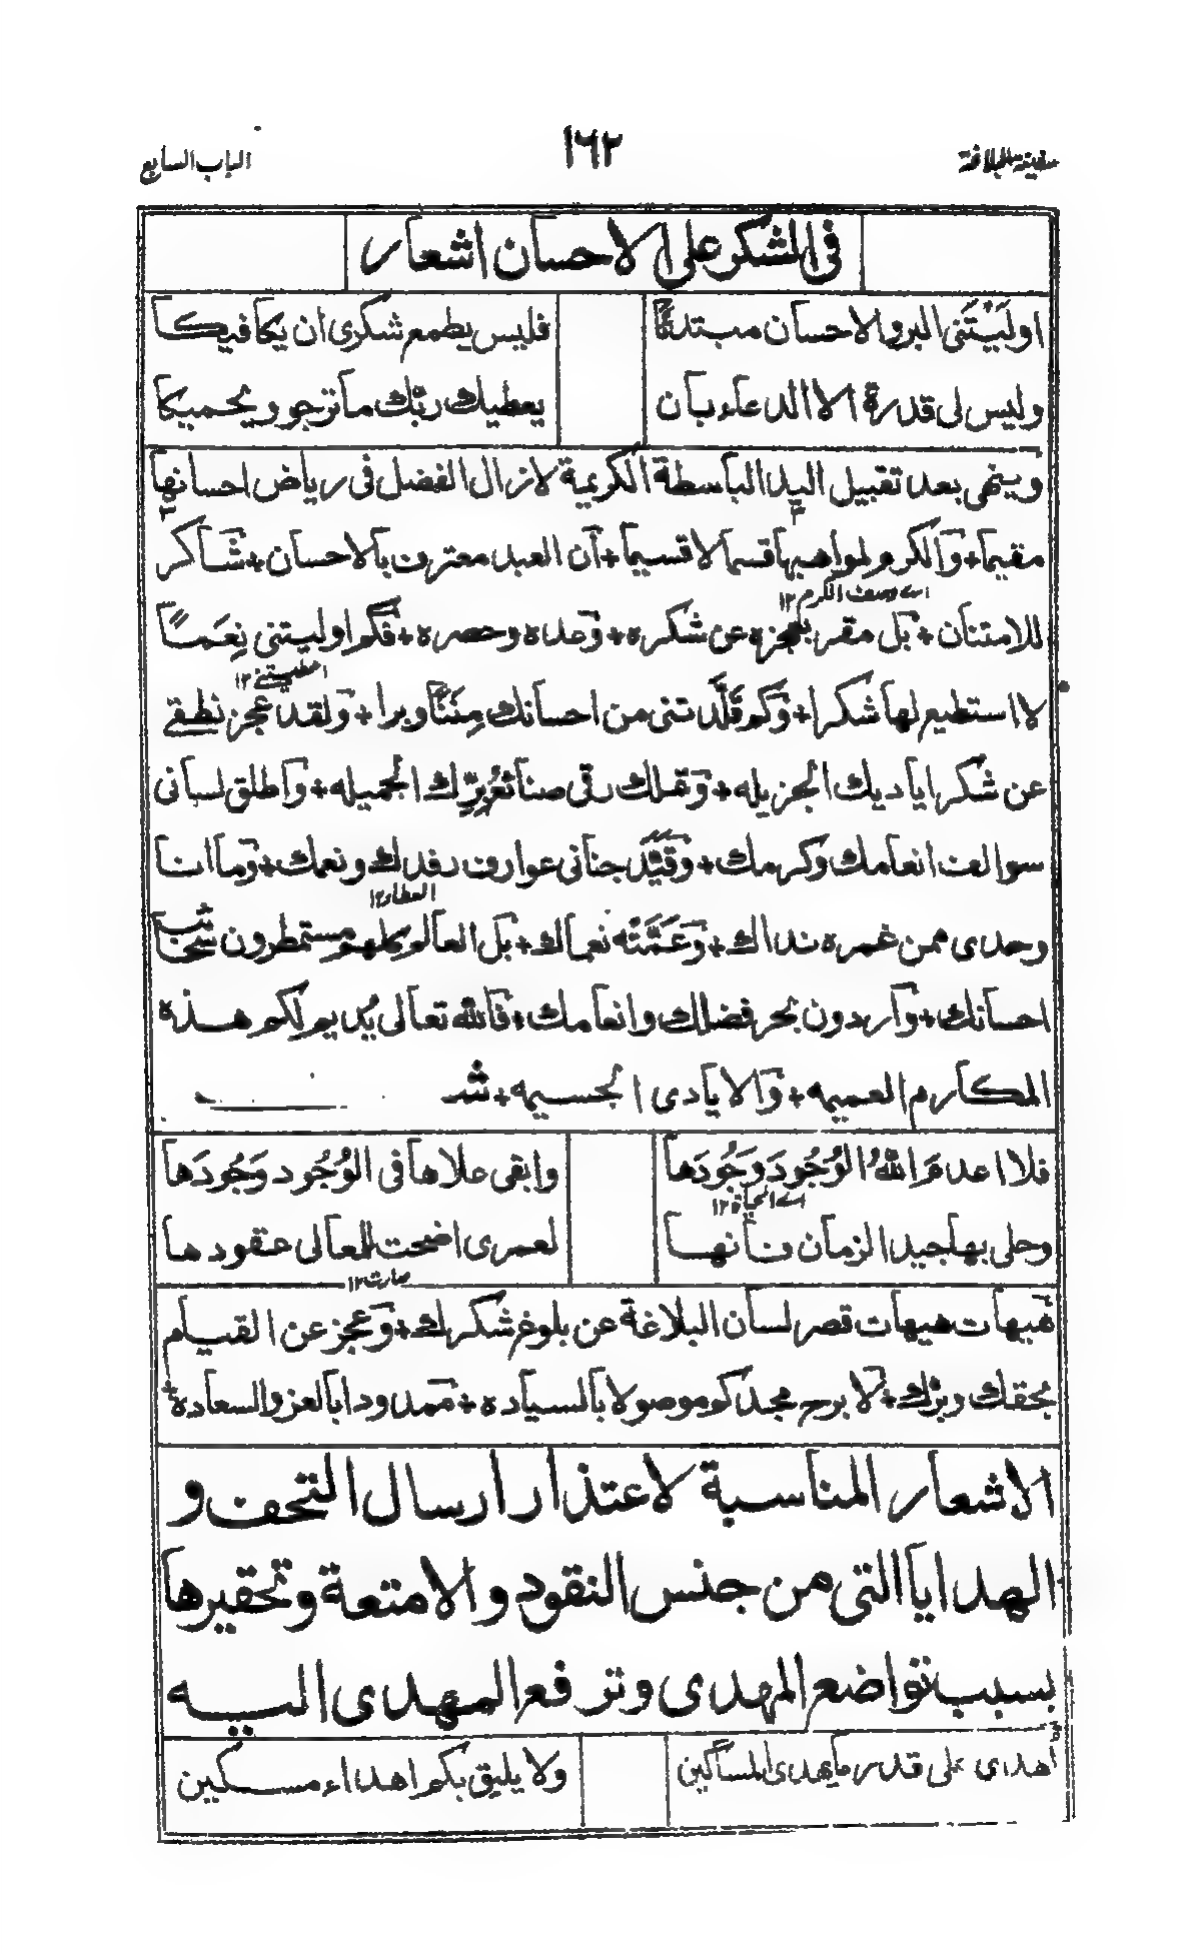 سفينة البلاغة ١٦٢ الباب السابع
فى الشكر على الاحسان اشعار
اوليتنى البر والاحسان مبتدئًا فليس يطمع شكرى ان يكافيكا
وليس لى قدرة الا الدعاء بان يعطيك ربك ما ترجو ويحميكا
وينهى بعد تقبيل اليد الباسطة الكريمة لا زال الفضل فى رياض احسانها
مقيما + والكرم لمواهبها قسما لا قسيما + ان العبد معترف بالاحسان + شاكر
اے وصف الكرم ١٢
للامتنان + بل مقر بعجزه عن شكره + وعده وحصره + فكم اوليتنى نِعَمًا
اعطيتنے ١٢
لا استطيع لها شكرا + وكم قَلَّدتنى من احسانك مِنَنًا وبرا + ولقد عجز نطقے
عن شكر اياديك الجزيله + وتملك رقى صنائع بِرِّك الجميله + واطلق لسانى
سوالف انعامك وكرمك + وقَيَّدَ جنانى عوارف رفدك ونعمك + وما انا
العطار ١٢
وحدى ممن غمره نداك + وعَمَّتْه نعماك + بل العالم كلهم مستمطرون سحائب
احسانك + واردون بحر فضلك وانعامك + فالله تعالى يُديم لكم هذه
المكارم العميمه + والايادى الجسيمه + شـــعر
فلا اعدم اللهُ الوُجُودَ وَجُودَها وابقى علاها فى الوُجُود وَجُودَها
اے الحياة ١٢
وحلى بها جيد الزمان فانها لعمرى اضحت للمعالى عقودها
صارت ١٢
هيهات هيهات قصر لسان البلاغة عن بلوغ شكرك + وعجز عن القيام
بحقك وبرك + لا برح مجدكم موصولا بالسياده + ممدودا بالعز والسعادة +
الاشعار المناسبة لاعتذار ارسال التحف و
الهدايا التى من جنس النقود والامتعة وتحقيرها
بسبب تواضع المهدى وترفع المهدى اليــه
اهدى على قدر ما يهدى المساكين ولا يليق بكم اهداء مسكين